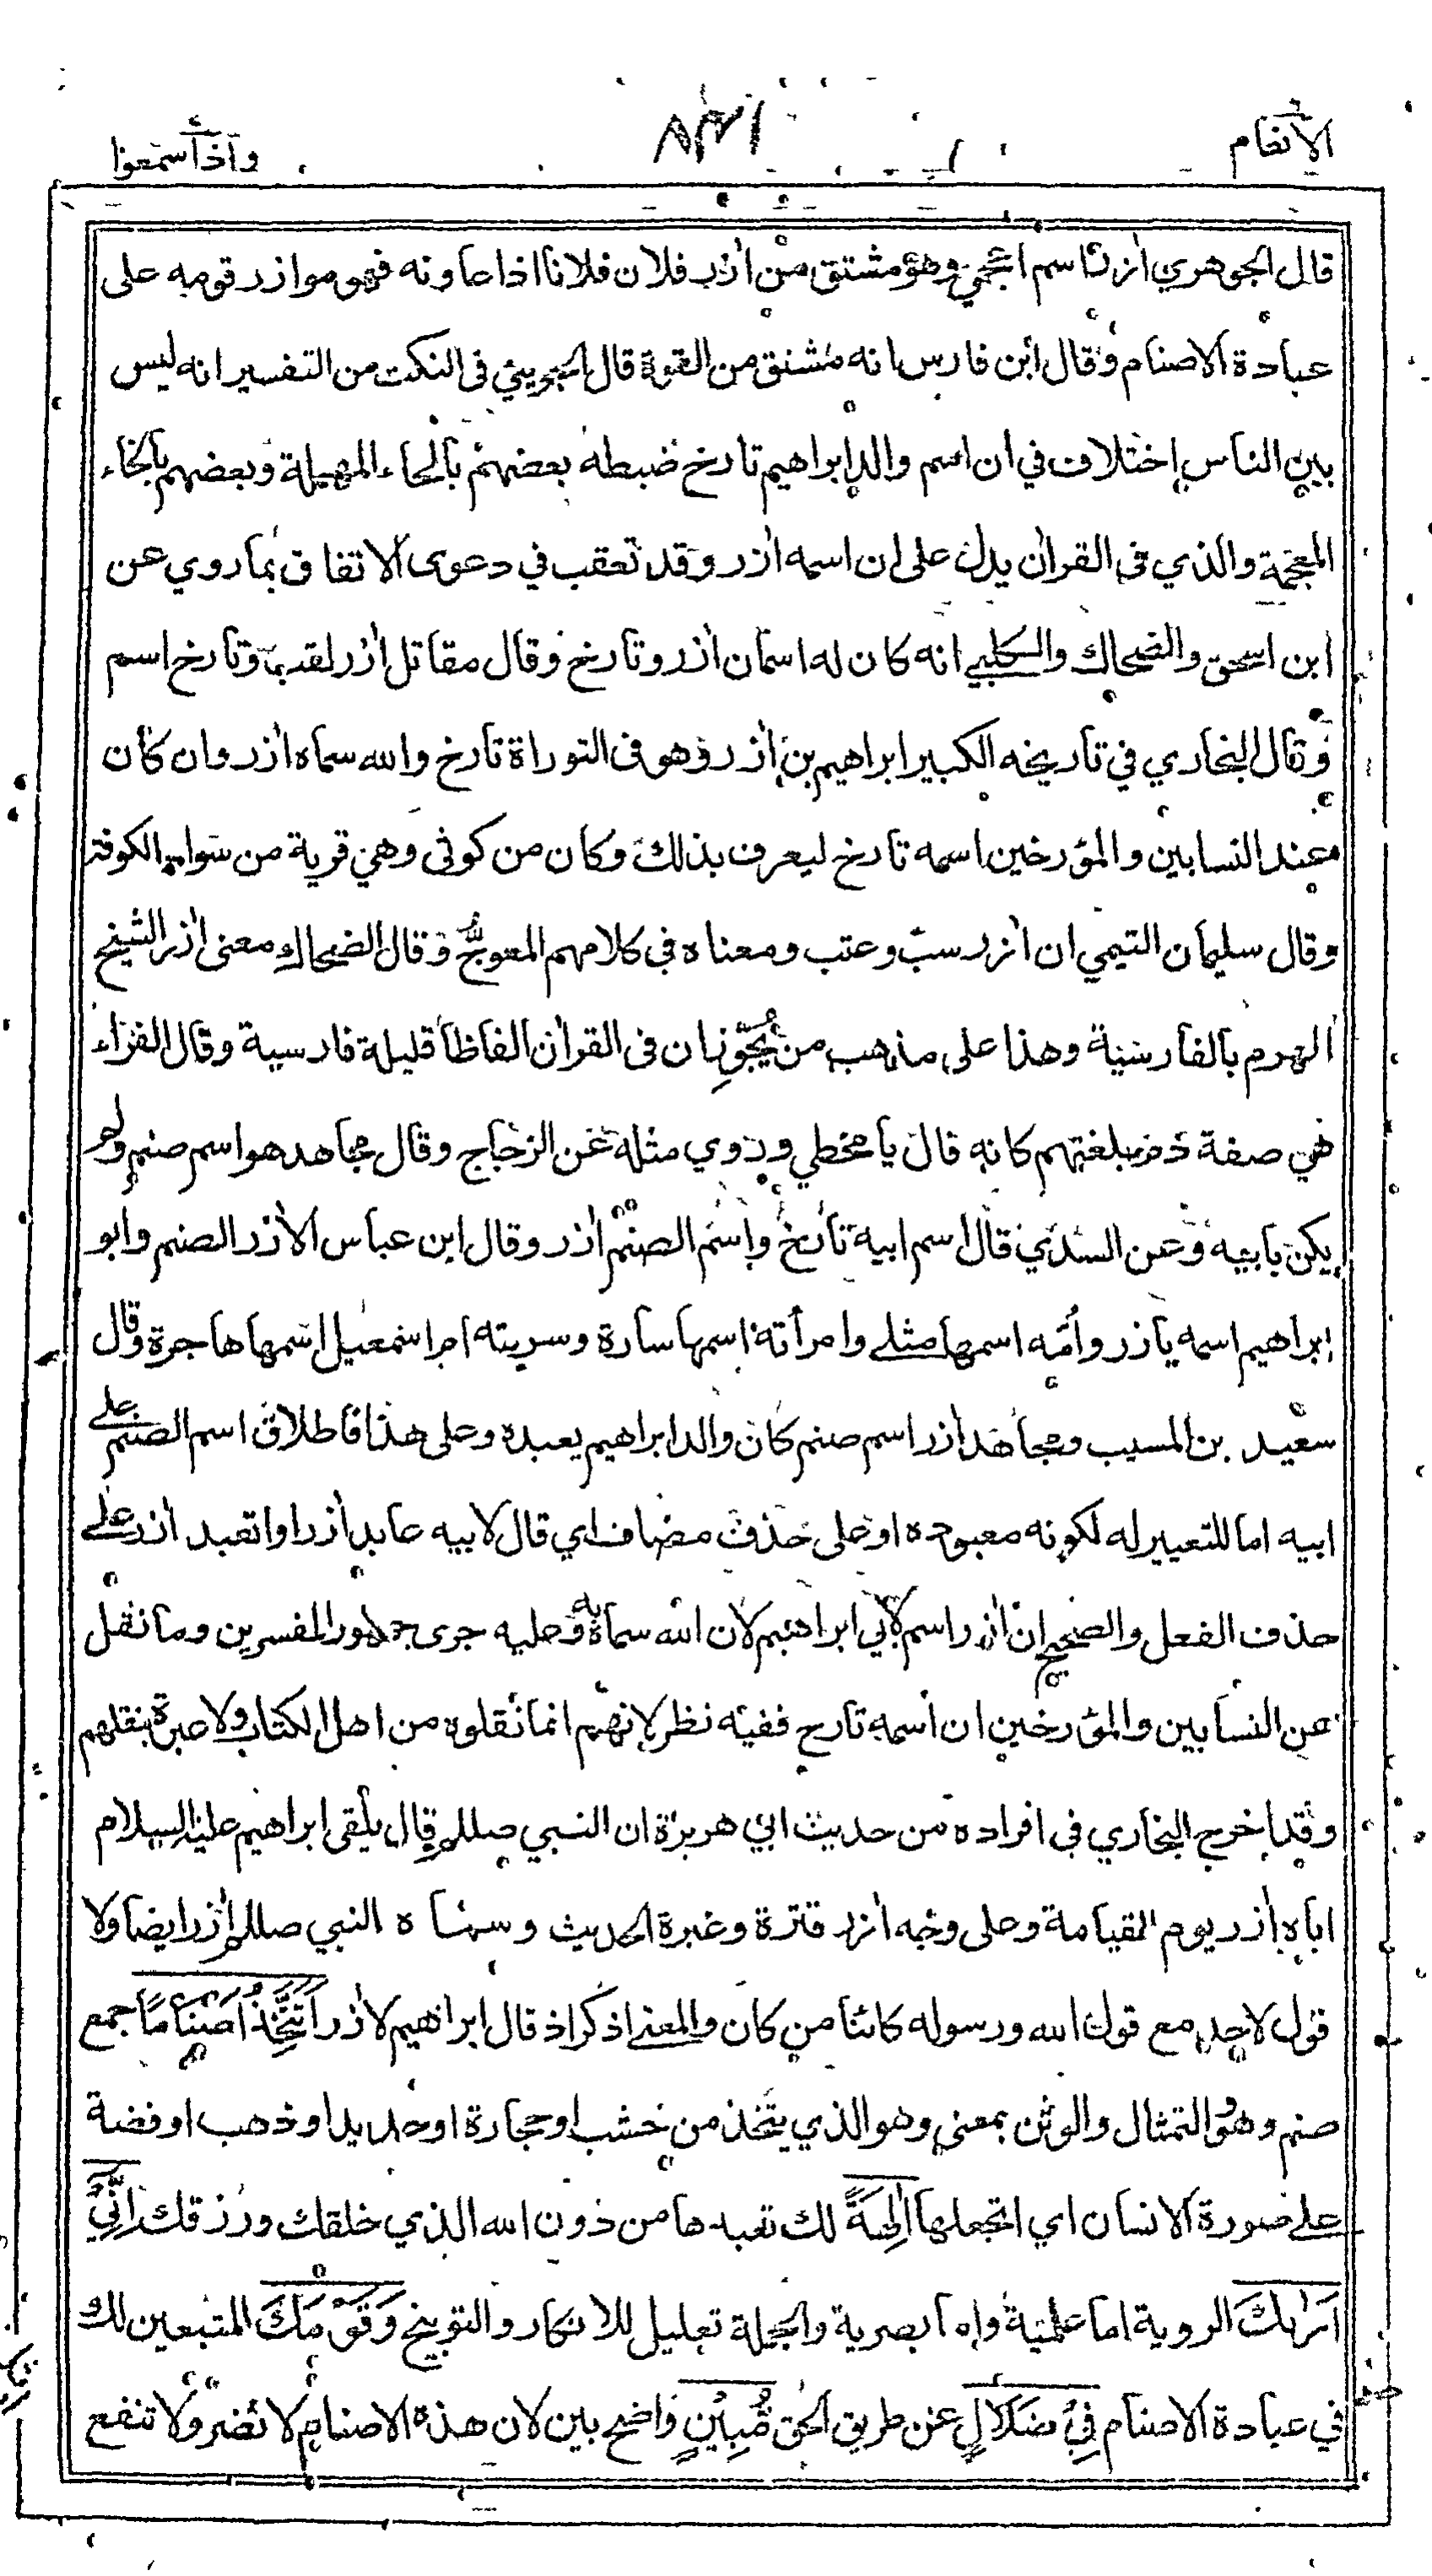 الانعام
واذا سمعوا
قال الجوهري اٰزر اسم اعجمي وهو مشتق من اٰزر فلان فلانا اذا عاونه فهو موازر قومه على
عبادة الاصنام وقال ابن فارس انه مشتق من القوة قال الجويني في النكت من التفسير انه ليس
بين الناس اختلاف في ان اسم والد ابراهيم تارخ ضبطه بعضهم بالحاء المهملة وبعضهم بالخاء
المعجمة والذي في القراٰن يدل على ان اسمه اٰزر وقد تعقب في دعوى الاتفاق بما روي عن
ابن اسحق والضحاك والكلبي انه كان له اسمان اٰزر وتارخ وقال مقاتل اٰزر لقب وتارخ اسم
وقال البخاري في تاريخه الكبير ابراهيم بن اٰزر وهو في التوراة تارخ والله سماه اٰزر وان كان
عند النسابين والمؤرخين اسمه تارخ ليعرف بذلك وكان من كوثى وهي قرية من سواد الكوفة
وقال سليمان التيمي ان اٰزر سبّ وعتب ومعناه في كلامهم المعوج وقال الضحاك معنى اٰزر الشيخ
الهرم بالفارسية وهذا على مذهب من يُجَوِّز ان في القراٰن الفاظا قليلة فارسية وقال الفراء
هي صفة ذم بلغتهم كانه قال يا مخطي وروي مثله عن الزجاج وقال مجاهد هو اسم صنم ولم
يكن بابيه وعن السدّي قال اسم ابيه تارخ واسم الصنم اٰزر وقال ابن عباس الاٰزر الصنم وابو
ابراهيم اسمه يازر وامّه اسمها مثلى وامرأته اسمها سارة وسريته ام اسمعيل اسمها هاجرة وقال
سعيد بن المسيب ومجاهد اٰزر اسم صنم كان والد ابراهيم يعبده وعلى هذا فاطلاق اسم الصنم على
ابيه اما للتعبير له لكونه معبوده او على حذف مضاف اي قال لابيه عابد اٰزر او اتعبد اٰزر على
حذف الفعل والصحيح ان اٰزر اسم لابي ابراهيم لان الله سماه به وعليه جرى جمهور المفسرين وما نقل
عن النسابين والمؤرخين ان اسمه تارح ففيه نظر لانهم انما نقلوه من اهل الكتاب ولا عبرة بنقلهم
وقد اخرج البخاري في افراده من حديث ابي هريرة ان النبي صللم قال يلقى ابراهيم عليه السلام
اباه اٰزر يوم القيامة وعلى وجه اٰزر قترة وغبرة الحديث وسماه النبي صللم اٰزر ايضا ولا
قول لاحد مع قول الله ورسوله كائنا من كان والمعنى اذكر اذ قال ابراهيم لاٰزر اَتَتَّخِذُ اَصْنَامًا جمع
صنم وهو التمثال والوثن بمعنى وهو الذي يتخذ من خشب او حجارة او حديد او ذهب او فضة
على صورة الانسان اي اتجعلها اٰلِهَةً لك تعبدها من دون الله الذي خلقك ورزقك اِنِّيْٓ
اَرٰىكَ الروية اما علمية واما بصرية والجملة تعليل للانكار والتوبيخ وَقَوْمَكَ المتبعين لك
في عبادة الاصنام فِيْ ضَلَالٍ عن طريق الحق مُّبِيْنٍ واضح بين لان هذه الاصنام لا تضر ولا تنفع